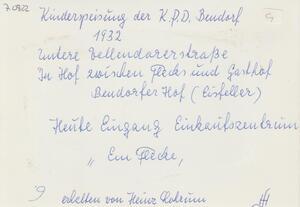 70822
Kinderspeisung der K.P.D. Bendorf
1932
Untere Vallendarerstraße
In Hof zwischen Flecks und Gasthof
Bendorfer Hof (Eisfeller)
Heute Eingang Einkaufszentrum
erhalten von Heinz